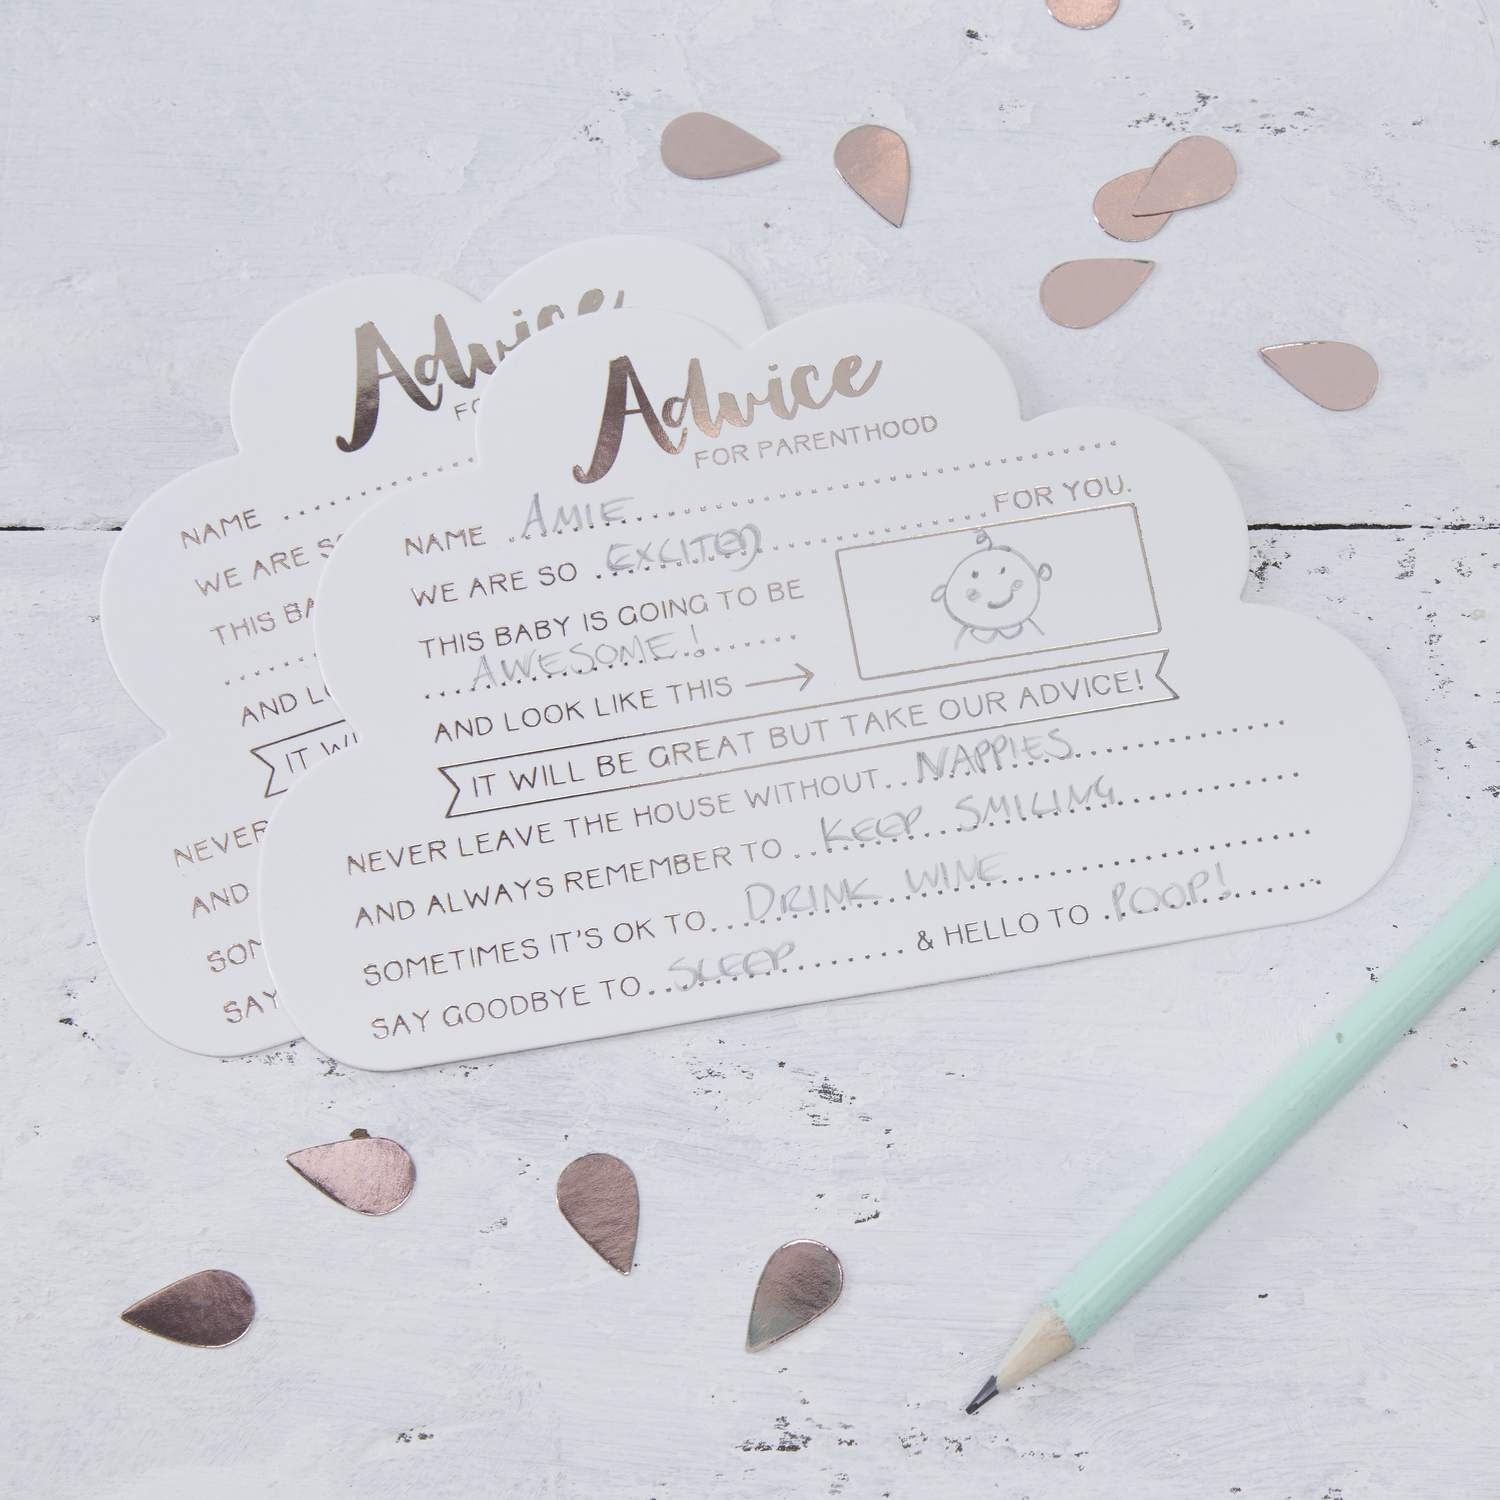 Advice
FO
NAME
WE ARE SO
THIS BA
AND LO
IT WI
NEVER
AND
SOM
SAY
Advice
FOR PARENTHOOD
NAME AMIE
WE ARE SO EXCITED FOR YOU.
THIS BABY IS GOING TO BE
AWESOME!
AND LOOK LIKE THIS →
IT WILL BE GREAT BUT TAKE OUR ADVICE!
NEVER LEAVE THE HOUSE WITHOUT NAPPIES
AND ALWAYS REMEMBER TO KEEP SMILING
SOMETIMES IT'S OK TO DRINK WINE
SAY GOODBYE TO SLEEP & HELLO TO POOP!